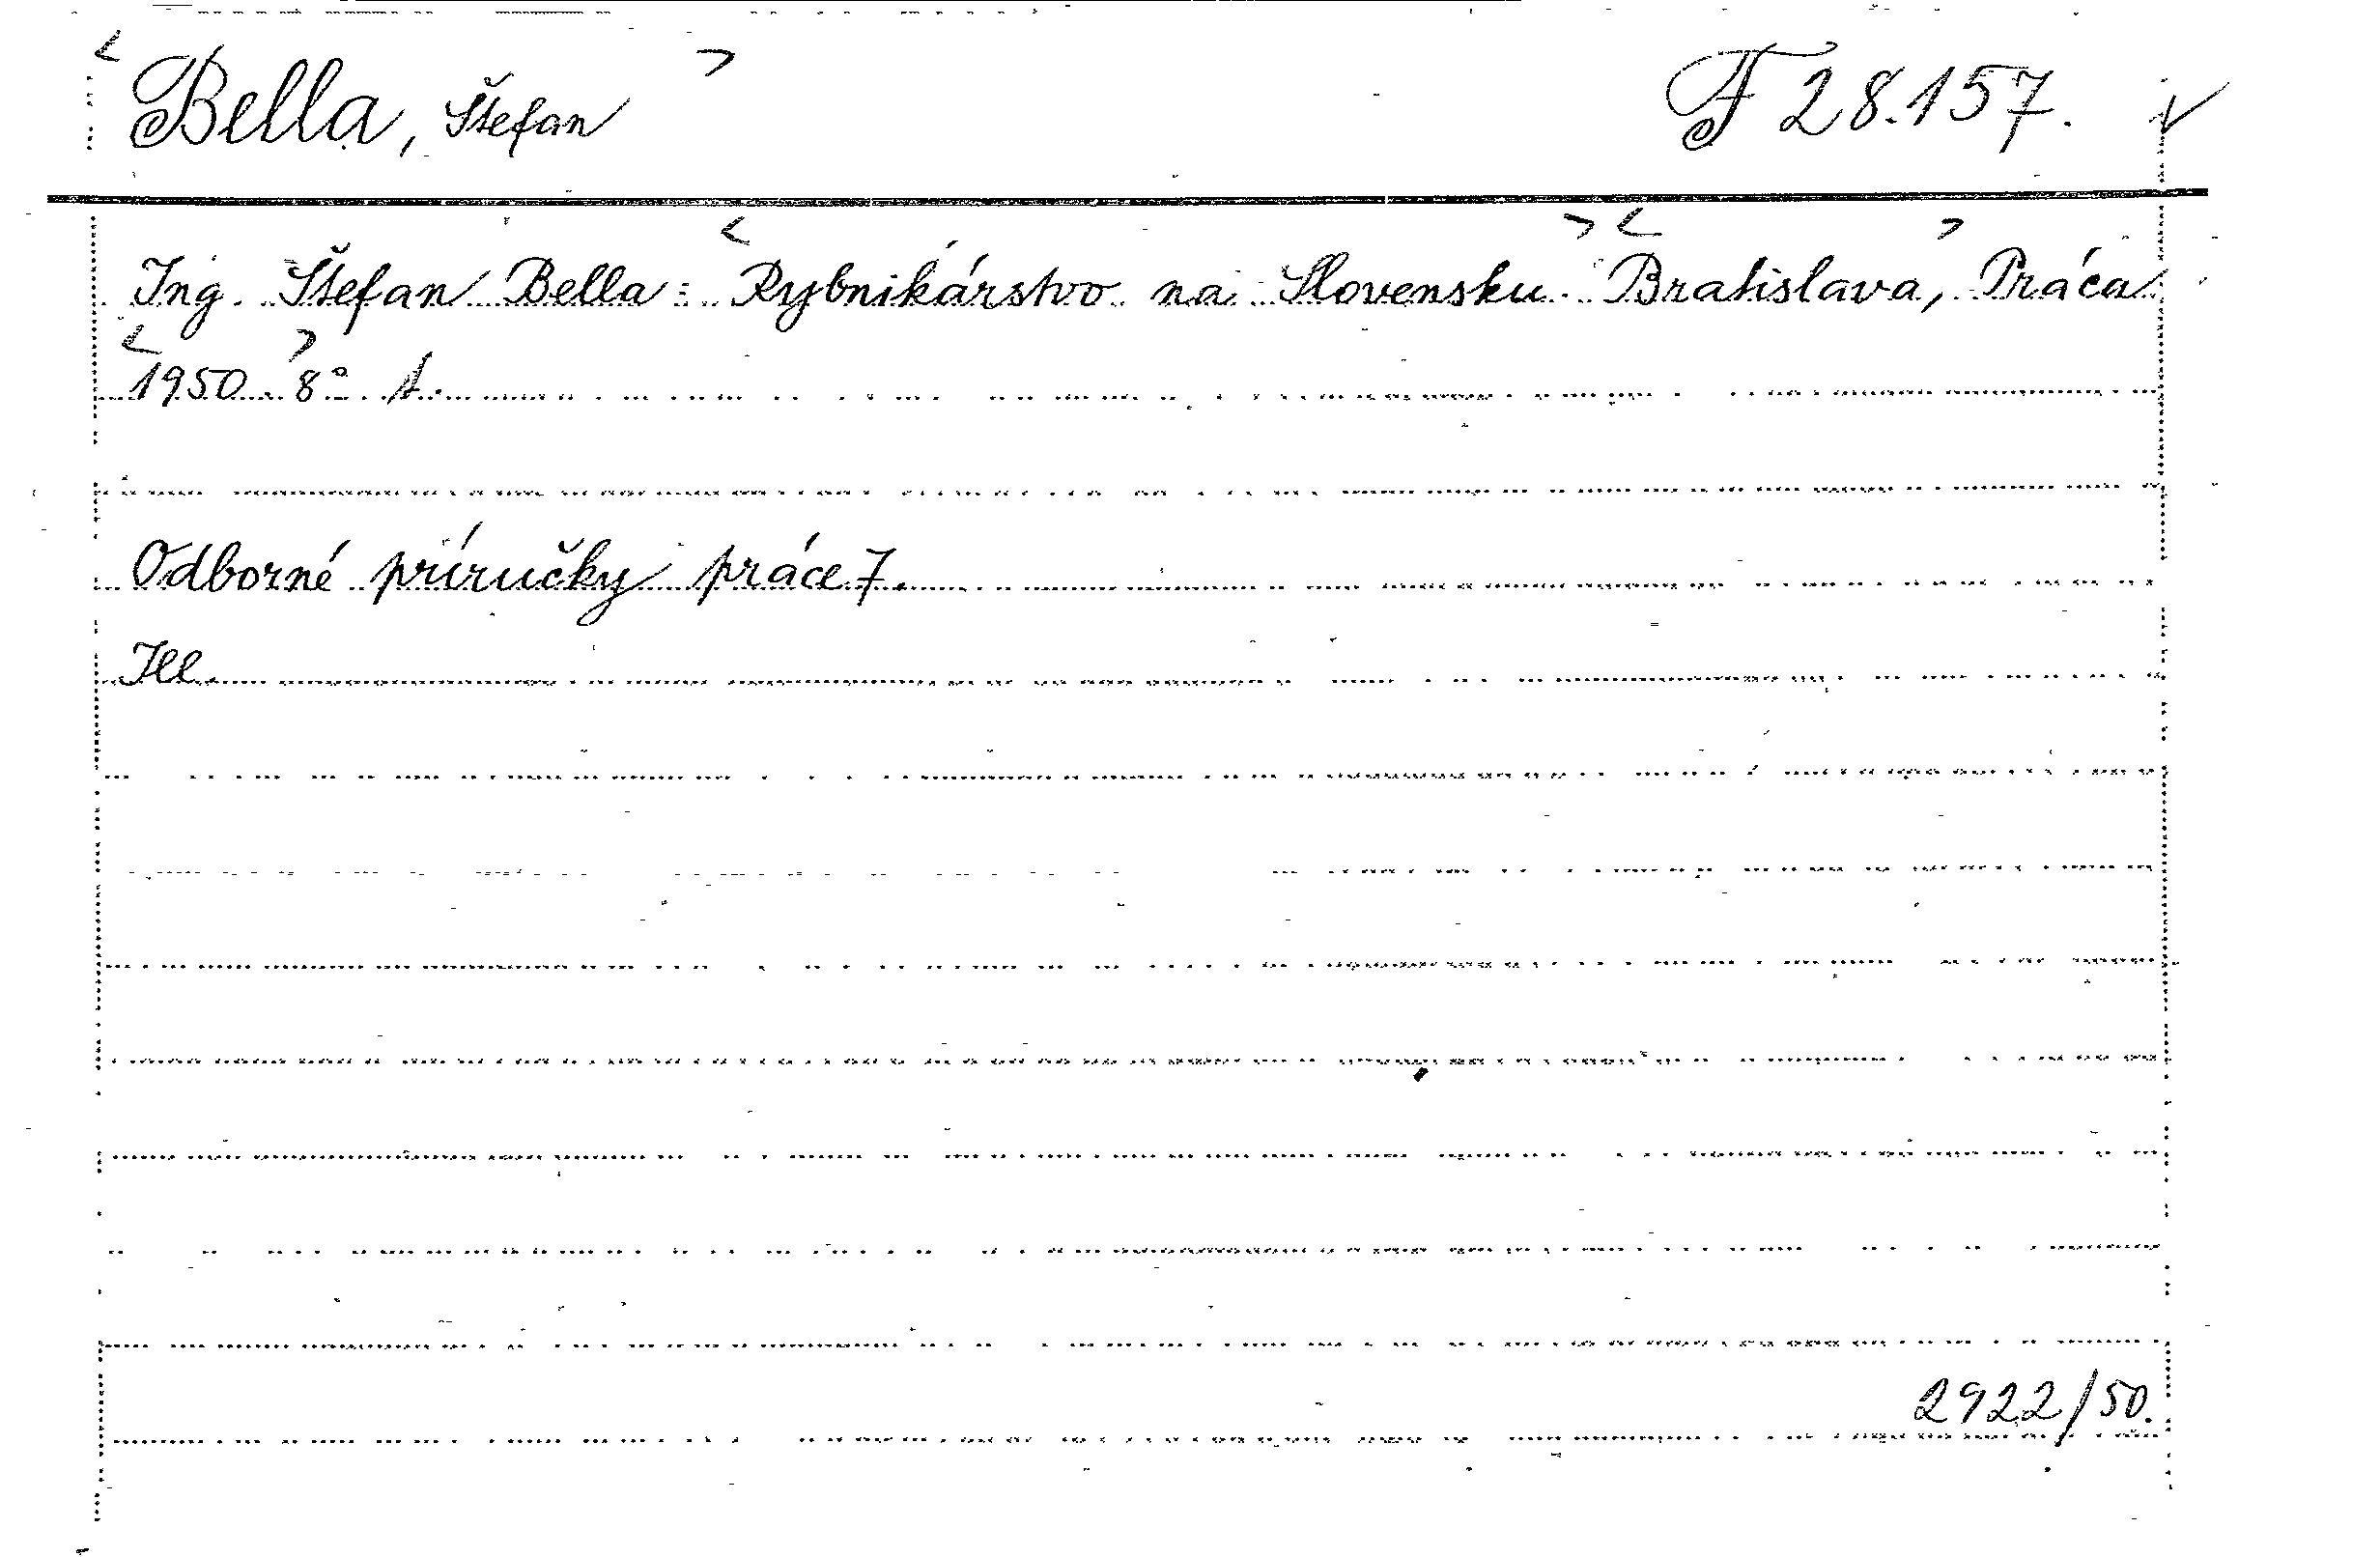 < Bella, Štefan > F 28.157. ✓
Ing. Štefan Bella: <Rybnikárstvo na Slovensku.> <Bratislava, Práca>
<1950.> 8° 1.
Odborné príručky práce 7.
Ill.
2922/50.